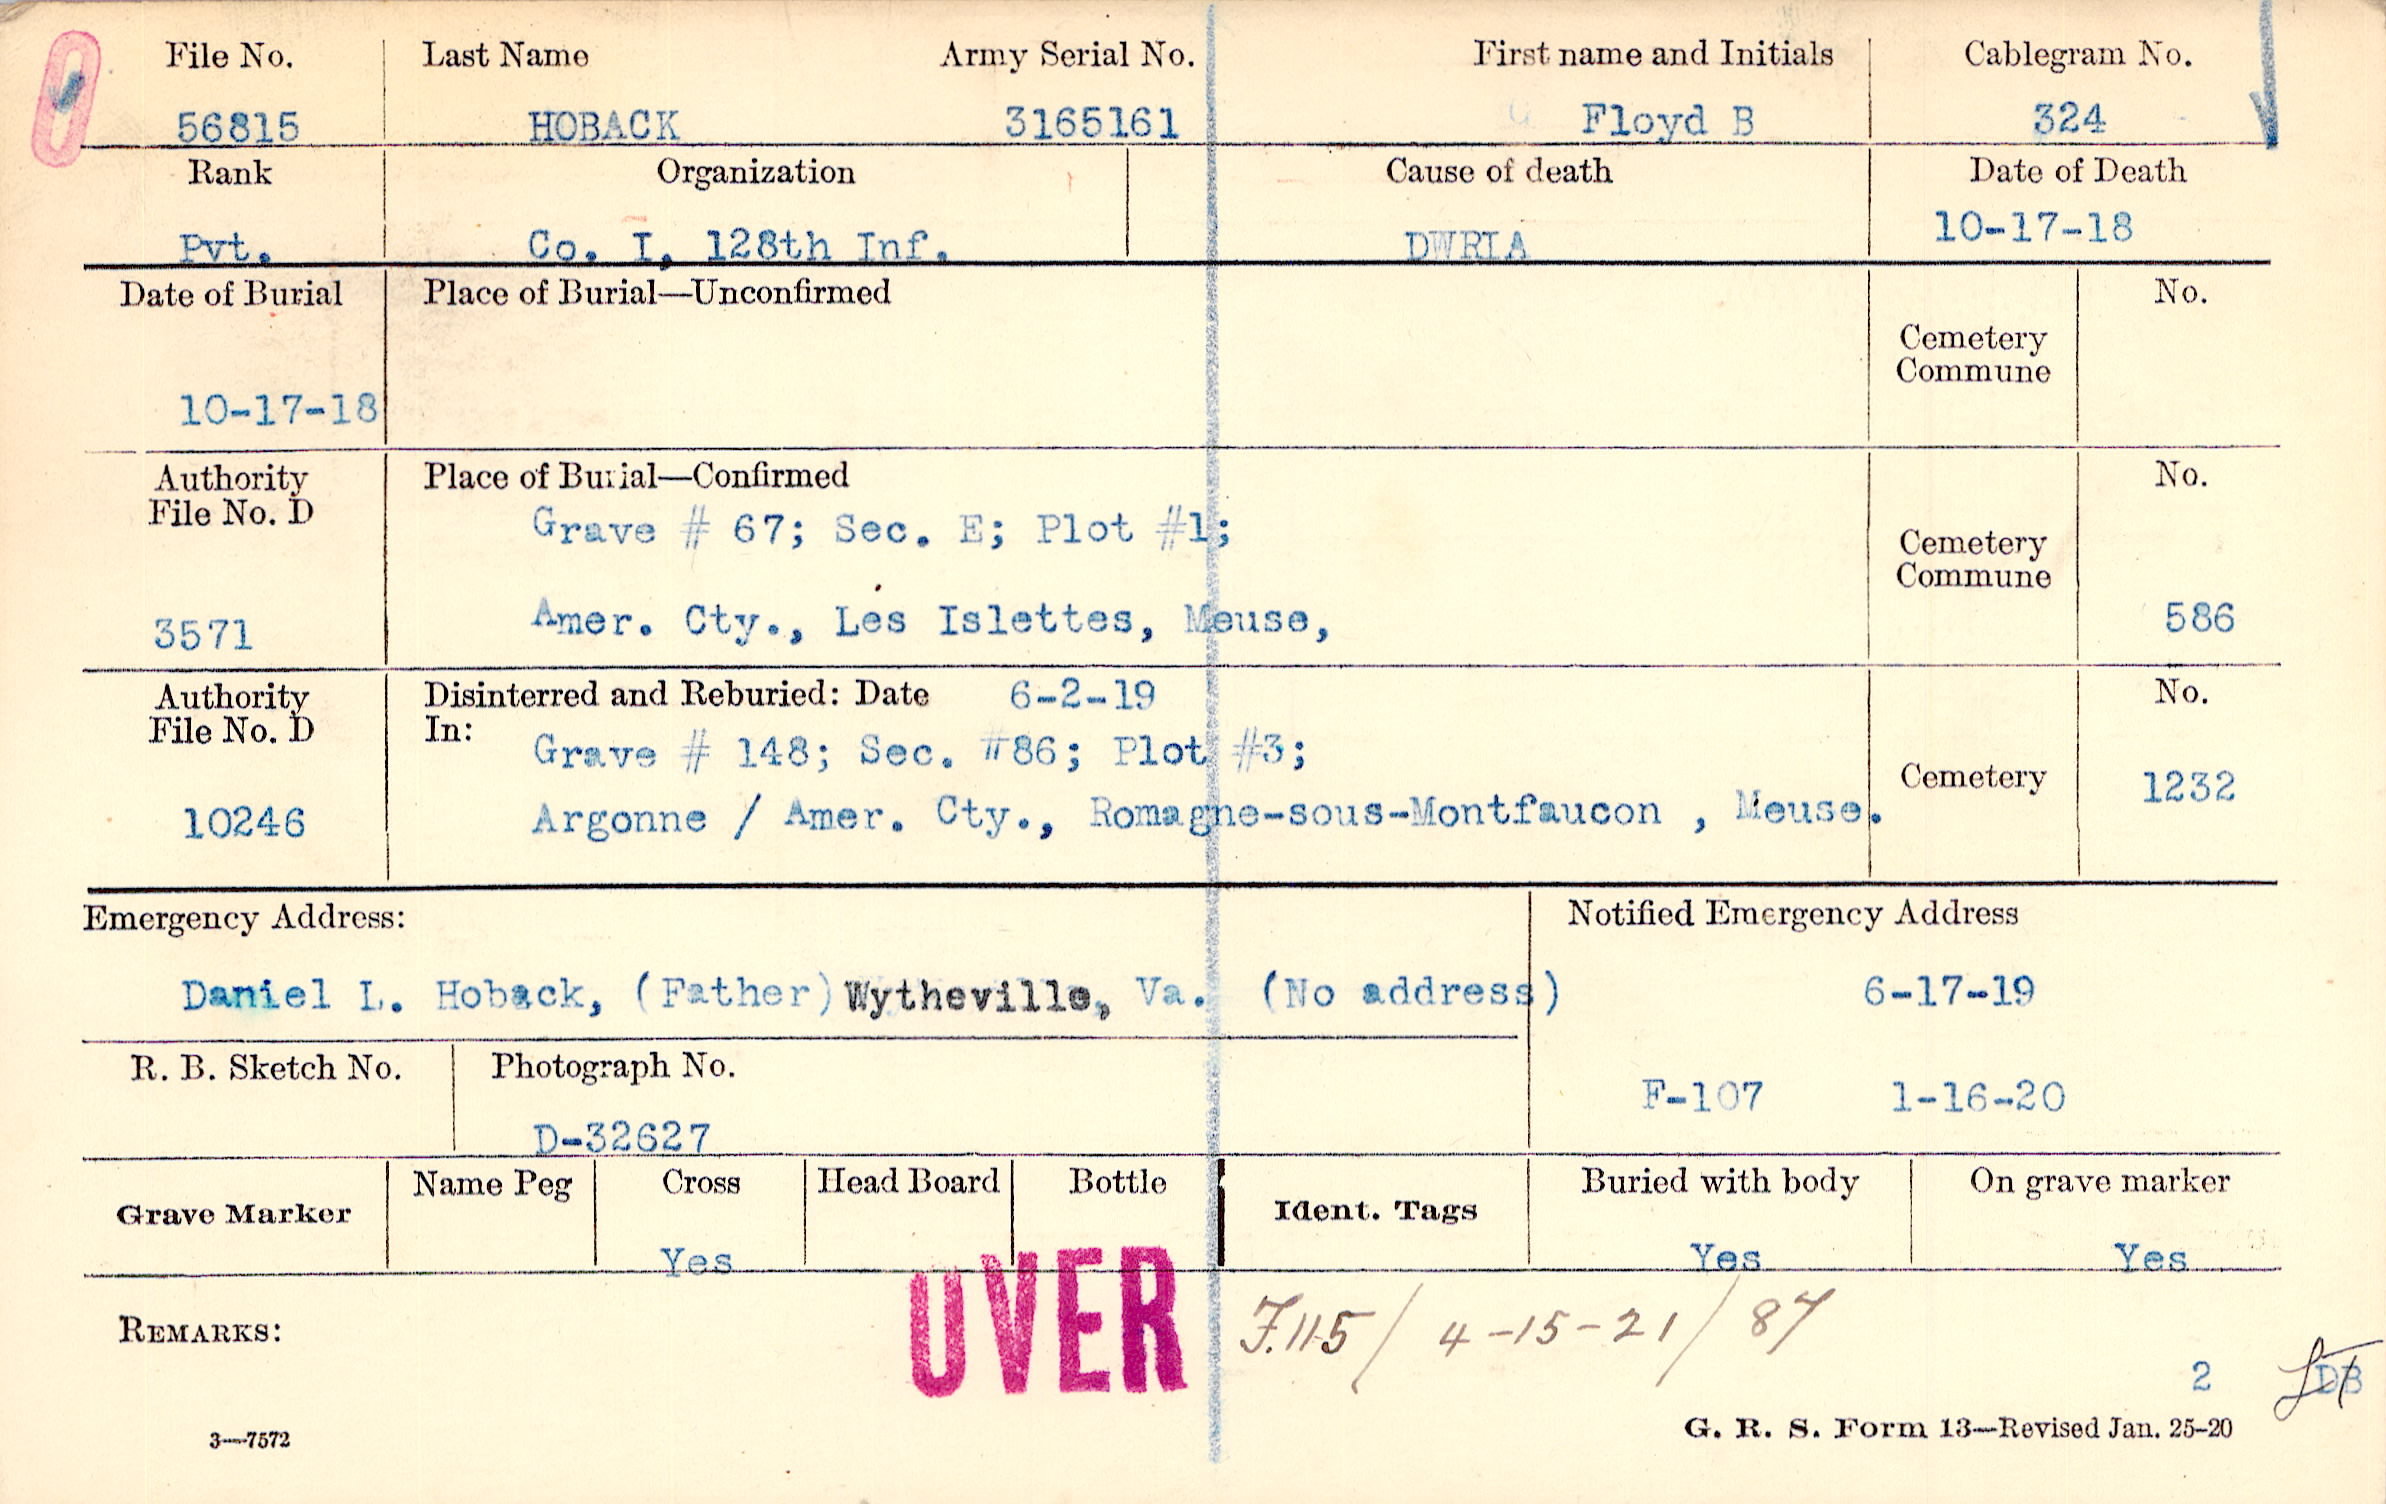 File No. Last Name Army Serial No. First name and Initials Cablegram No.
56815 HOBACK 3165161 Floyd B 324
Rank Organization Cause of death Date of Death
Pvt. Co. I, 128th Inf. DWRIA 10-17-18
Date of Burial Place of Burial—Unconfirmed No.
Cemetery
Commune
10-17-18
Authority Place of Burial—Confirmed No.
File No. D
Grave # 67; Sec. E; Plot #1;
Cemetery
Commune
3571 Amer. Cty., Les Islettes, Meuse, 586
Authority Disinterred and Reburied: Date 6-2-19 No.
File No. D In:
Grave # 148; Sec. #86; Plot #3;
Cemetery 1232
10246 Argonne / Amer. Cty., Romagne-sous-Montfaucon , Meuse.
Emergency Address: Notified Emergency Address
Daniel L. Hoback, (Father) Wytheville, Va. (No address) 6-17-19
R. B. Sketch No. Photograph No.
F-107 1-16-20
D-32627
Grave Marker Name Peg Cross Head Board Bottle Ident. Tags Buried with body On grave marker
Yes Yes Yes
OVER
F.115 / 4-15-21 / 87
REMARKS:
2 DB
3—7572 G. R. S. Form 13—Revised Jan. 25-20